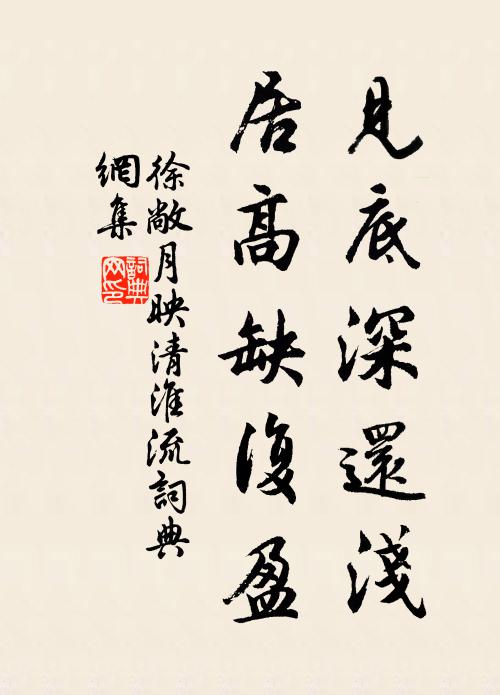 見底深還淺
居高缺復盈
徐敞月映清淮流詞典
網集
詞典網印